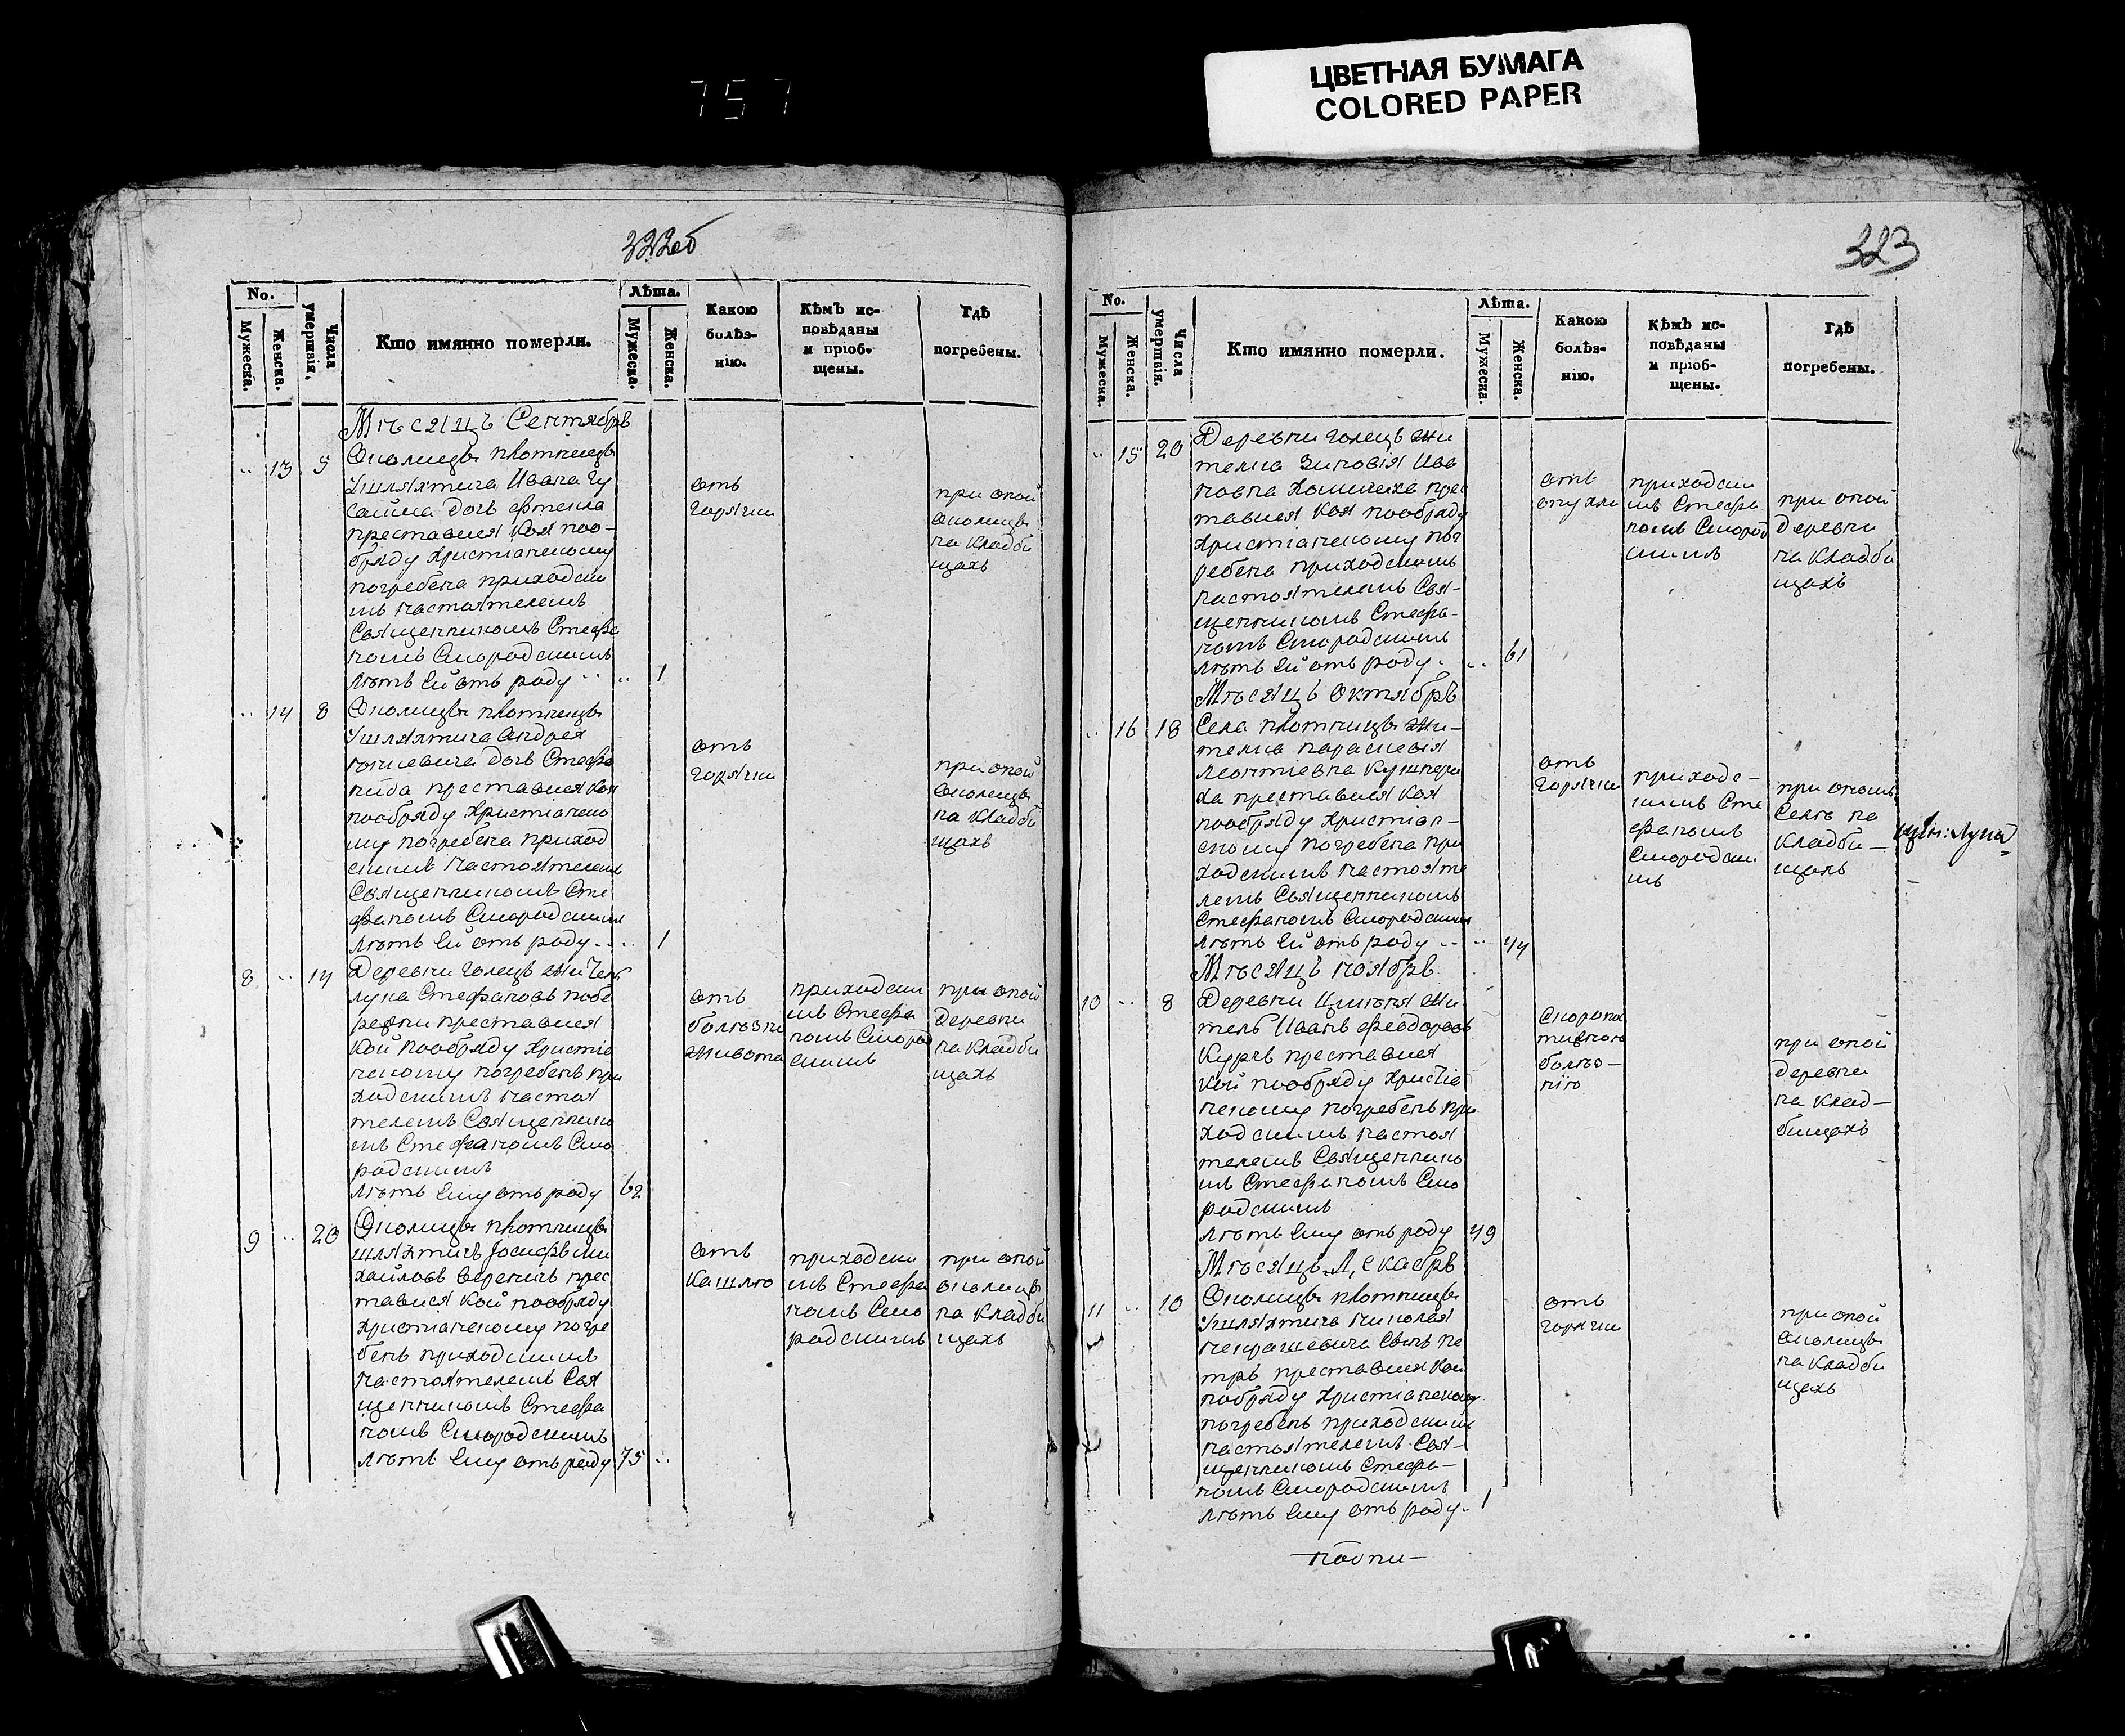 757
ЦВЕТНАЯ БУМАГА
COLORED PAPER
322об
No.
Мужеска.
Женска.
Числа умертвія,
Кто имянно померли.
Лѣта.
Мужеска.
Женска.
Какою болѣз-
нію.
Кѣмъ ис-
повѣданы
и пріоб-
щены.
Гдѣ
погребены.
Мѣсяцъ Сентябрь
.. 13 5 Околицы Плотницы
Ушляхтича Ивана Гу
дочь
преставися коя поо-
бряду христіанскому
погребена приходски
мъ настоятелемъ
Священникомъ Стефа
номъ Смородскимъ
лѣтъ ей отъ роду .. .. 1
отъ
горячки
при оной
околицы
на кладби
щахъ
.. 14 8 Околицы Плотницы
Ушляхтича Андрея
дочь Стефа
нида преставися коя
пообряду христіанско
му погребена приход
скимъ настоятелемъ
Священникомъ Сте
фаномъ Смородскимъ
лѣтъ ей отъ роду .. .. 1
отъ
горячки
при оной
околицы
на кладби
щахъ
8 .. 14 Деревни Голецъ житель
Лука Стефановъ
преставися
кой пообряду христіа
нскому погребенъ при
ходскимъ настоя
телемъ Священнико
мъ Стефаномъ Смо
родскимъ
лѣтъ ему отъ роду 62
отъ
болѣзни
живота
приходски
мъ Стефа
номъ Смород
скимъ
при оной
деревни
на кладби
щахъ
9 .. 20 Околицы Плотницы
шляхтичъ Іосифъ Ми
хайловъ Вереничъ прес
тавися кой пообряду
христіанскому погре
бенъ приходскимъ
настоятелемъ Свя
щенникомъ Стефа
номъ Смородскимъ
лѣтъ ему отъ роду 75 ..
отъ
кашлю
приходски
мъ Стефа
номъ Смо
родскимъ
при оной
околицы
на кладби
щахъ
323
No.
Мужеска.
Женска.
Числа умертвія.
Кто имянно померли.
Лѣта.
Мужеска.
Женска.
Какою
болѣз-
нію.
Кѣмъ ис-
повѣданы
и пріоб-
щены.
Гдѣ
погребены.
.. 15 20 Деревни Голецъ жи
телка Зиновія Ива
новна прес
тавися коя пообряду
христіанскому пог
ребена приходскимъ
настоятелемъ Свя-
щенникомъ Стефа-
номъ Смородскимъ
лѣтъ ей отъ роду. .. 61
отъ
опухли
приходски
мъ Стефа
номъ Смород
скимъ
при оной
деревни
на кладби
щахъ
Мѣсяцъ Октябрь
.. 16 18 Села Плотницы жи-
телка Параскевія
Леонтіевна Кушнери
ха преставися коя
пообряду христіан-
скому погребена при
ходскимъ настояте
лемъ Священникомъ
Стефаномъ Смородскимъ
лѣтъ ей отъ роду .. .. 44
отъ
горячки
приходс-
кимъ Сте
фаномъ
Смородски
мъ
при ономъ
селѣ на
кладби-
щахъ
Мѣсяцъ Ноябрь
10 .. 8 Деревни жи
тель Иванъ Феодоровъ
Курчъ преставися
кой пообряду христіа
нскому погребенъ при
ходскимъ настоя
телемъ Священнико
мъ Стефаномъ Смо
родскимъ
лѣтъ ему отъ роду 49
скоропос
тижною
болѣз-
нію
при оной
деревни
на клад-
бищахъ
Мѣсяцъ Декабрь
11 .. 10 Околицы Плотницы
Ушляхтича Николая
сынъ Пе
тръ преставися кой
пообряду христіанскому
погребенъ приходскимъ
настоятелемъ Свя-
щенникомъ Стефа-
номъ Смородскимъ
лѣтъ ему отъ роду. 1
отъ
горячки
при оной
околицы
на кладби
щахъ